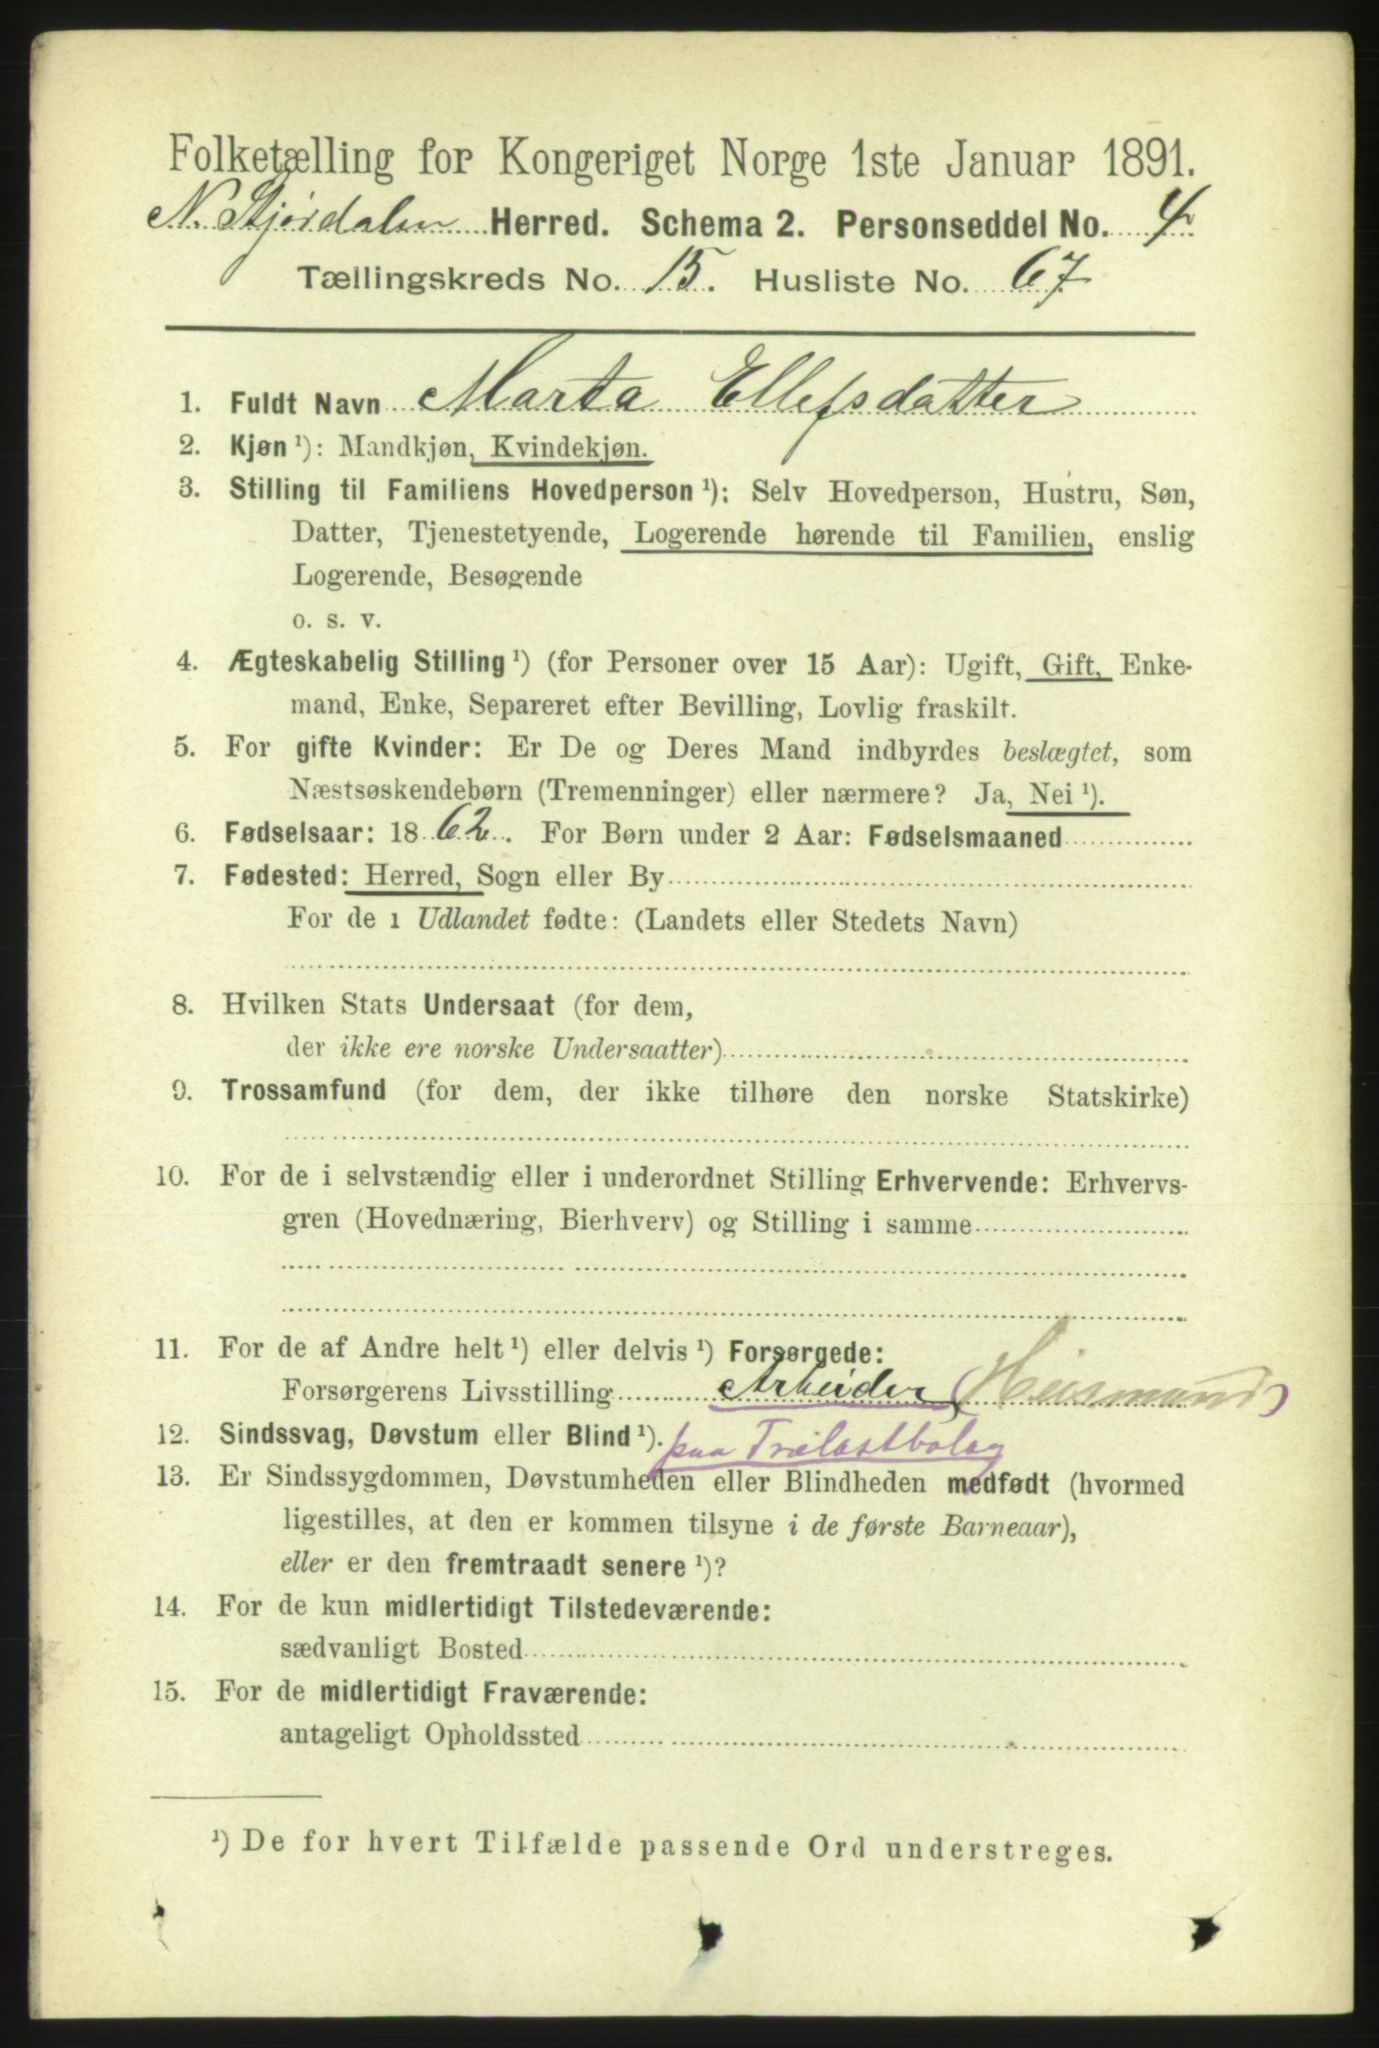 Folketælling for Kongeriget Norge 1ste Januar 1891.
N. Stjørdalen Herred. Schema 2. Personseddel No. 4
Tællingskreds No. 15. Husliste No. 67
1. Fuldt Navn Marta Ellefsdatter
2. Kjøn ¹): Mandkjøn, Kvindekjøn.
3. Stilling til Familiens Hovedperson ¹): Selv Hovedperson, Hustru, Søn,
Datter, Tjenestetyende, Logerende hørende til Familien, enslig
Logerende, Besøgende
o. s. v.
4. Ægteskabelig Stilling ¹) (for Personer over 15 Aar): Ugift, Gift, Enke-
mand, Enke, Separeret efter Bevilling, Lovlig fraskilt.
5. For gifte Kvinder: Er De og Deres Mand indbyrdes beslægtet, som
Næstsøskendebørn (Tremenninger) eller nærmere? Ja, Nei ¹).
6. Fødselsaar: 1862. For Børn under 2 Aar: Fødselsmaaned
7. Fødested: Herred, Sogn eller By
For de i Udlandet fødte: (Landets eller Stedets Navn)
8. Hvilken Stats Undersaat (for dem,
der ikke ere norske Undersaatter)
9. Trossamfund (for dem, der ikke tilhøre den norske Statskirke)
10. For de i selvstændig eller i underordnet Stilling Erhvervende: Erhvervs-
gren (Hovednæring, Bierhverv) og Stilling i samme
11. For de af Andre helt ¹) eller delvis ¹) Forsørgede:
Forsørgerens Livsstilling Arbeider
12. Sindssvag, Døvstum eller Blind ¹). paa Trælastbolag
13. Er Sindssygdommen, Døvstumheden eller Blindheden medfødt (hvormed
ligestilles, at den er kommen tilsyne i de første Barneaar),
eller er den fremtraadt senere ¹)?
14. For de kun midlertidigt Tilstedeværende:
sædvanligt Bosted
15. For de midlertidigt Fraværende:
antageligt Opholdssted
¹) De for hvert Tilfælde passende Ord understreges.